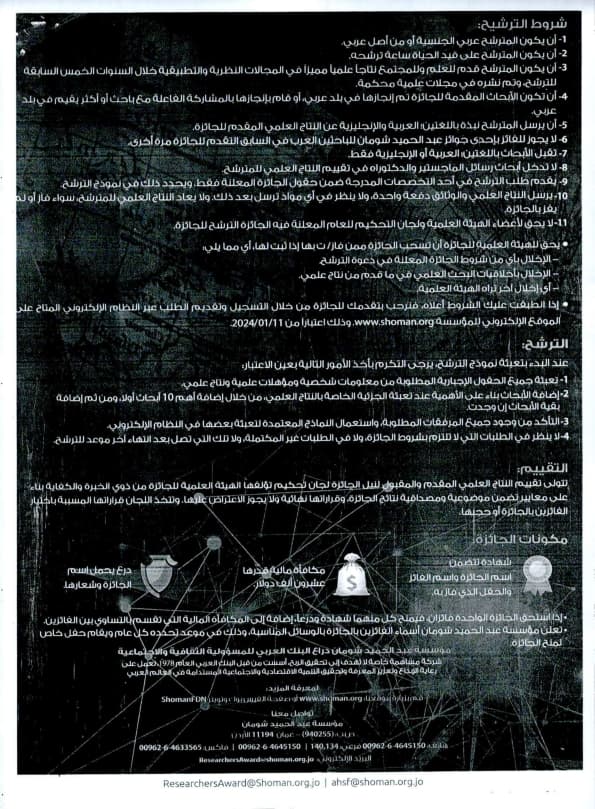 شروط الترشيح:
1- أن يكون المترشح عربي الجنسية أو من أصل عربي.
2- أن يكون المترشح على قيد الحياة ساعة ترشحه.
3- أن يكون المترشح قدم للعلم وللمجتمع نتاجاً علمياً مميزاً في المجالات النظرية والتطبيقية خلال السنوات الخمس السابقة
للترشح، وتم نشره في مجلات علمية محكمة.
4- أن تكون الأبحاث المقدمة للجائزة تم إنجازها في بلد عربي، أو قام بإنجازها بالمشاركة الفاعلة مع باحث أو أكثر يقيم في بلد
عربي.
5- أن يرسل المترشح نبذة باللغتين: العربية والإنجليزية عن النتاج العلمي المقدم للجائزة.
6- لا يجوز للفائز بإحدى جوائز عبد الحميد شومان للباحثين العرب في السابق التقدم للجائزة مرة أخرى.
7- تقبل الأبحاث باللغتين: العربية أو الإنجليزية فقط.
8- لا تدخل أبحاث رسائل الماجستير والدكتوراه في تقييم النتاج العلمي للمترشح.
9- يُقدم طلب الترشح في أحد التخصصات المدرجة ضمن حقول الجائزة المعلنة فقط، ويحدد ذلك في نموذج الترشح.
10- يرسل النتاج العلمي والوثائق دفعة واحدة، ولا ينظر في أي مواد ترسل بعد ذلك. ولا يعاد النتاج العلمي للمترشح، سواء فاز أو لم
يفز بالجائزة.
11- لا يحق لأعضاء الهيئة العلمية ولجان التحكيم للعام المعلنة فيه الجائزة الترشح للجائزة.
• يحق للهيئة العلمية للجائزة أن تسحب الجائزة ممن فاز/ت بها إذا ثبت لها، أي مما يلي:
– الإخلال بأي من شروط الجائزة المعلنة في دعوة الترشح.
– الإخلال بأخلاقيات البحث العلمي في ما قدم من نتاج علمي.
– أي إخلال آخر تراه الهيئة العلمية.
• إذا انطبقت عليك الشروط أعلاه، فنرحب بتقدمك للجائزة من خلال التسجيل وتقديم الطلب عبر النظام الإلكتروني المتاح على
الموقع الإلكتروني للمؤسسة www.shoman.org، وذلك اعتباراً من 2024/01/11.
الترشح:
عند البدء بتعبئة نموذج الترشح، يرجى التكرم بأخذ الأمور التالية بعين الاعتبار:
1- تعبئة جميع الحقول الإجبارية المطلوبة من معلومات شخصية ومؤهلات علمية ونتاج علمي.
2- إضافة الأبحاث بناء على الأهمية عند تعبئة الجزئية الخاصة بالنتاج العلمي، من خلال إضافة أهم 10 أبحاث أولا، ومن ثم إضافة
بقية الأبحاث إن وجدت.
3- التأكد من وجود جميع المرفقات المطلوبة، واستعمال النماذج المعتمدة لتعبئة بعضها في النظام الإلكتروني.
4- لا ينظر في الطلبات التي لا تلتزم بشروط الجائزة، ولا في الطلبات غير المكتملة، ولا تلك التي تصل بعد انتهاء آخر موعد للترشح.
التقييم:
تتولى تقييم النتاج العلمي المقدم والمقبول لنيل الجائزة لجان تحكيم تؤلفها الهيئة العلمية للجائزة من ذوي الخبرة والكفاية بناء
على معايير تضمن موضوعية ومصداقية نتائج الجائزة، وقراراتها نهائية ولا يجوز الاعتراض عليها. وتتخذ اللجان قراراتها المسببة باختيار
الفائزين بالجائزة أو حجبها.
مكونات الجائزة:
شهادة تتضمن
اسم الجائزة واسم الفائز
والحقل الذي فاز به.
مكافأة مالية قدرها
عشرون ألف دولار.
درع يحمل اسم
الجائزة وشعارها.
• إذا استحق الجائزة الواحدة فائزان، فيمنح كل منهما شهادة ودرعا، إضافة إلى المكافأة المالية التي تقسم بالتساوي بين الفائزين.
• تعلن مؤسسة عبد الحميد شومان أسماء الفائزين بالجائزة بالوسائل المناسبة، وذلك في موعد تحدده كل عام ويقام حفل خاص
لمنح الجائزة.
مؤسسة عبد الحميد شومان ذراع البنك العربي للمسؤولية الثقافية والاجتماعية
شركة مساهمة خاصة لا تهدف إلى تحقيق الربح، أسست من قبل البنك العربي العام 1978، تعمل على
رعاية الإبداع وتعزيز المعرفة وتحقيق التنمية الاقتصادية والاجتماعية المستدامة في العالم العربي
لمعرفة المزيد:
قم بزيارة موقعنا: www.shoman.org أو صفحة الفيس بوك وتويتر: ShomanFDN
تواصل معنا
مؤسسة عبد الحميد شومان
ص.ب: (940255) – عمان 11194 الأردن
هاتف: 4645150-6-00962 فرعي: 140,134 | 4645150 6-00962 | فاكس: 4633565-6-00962
البريد الإلكتروني: ResearchersAward@shoman.org.jo
ResearchersAward@Shoman.org.jo | ahsf@shoman.org.jo